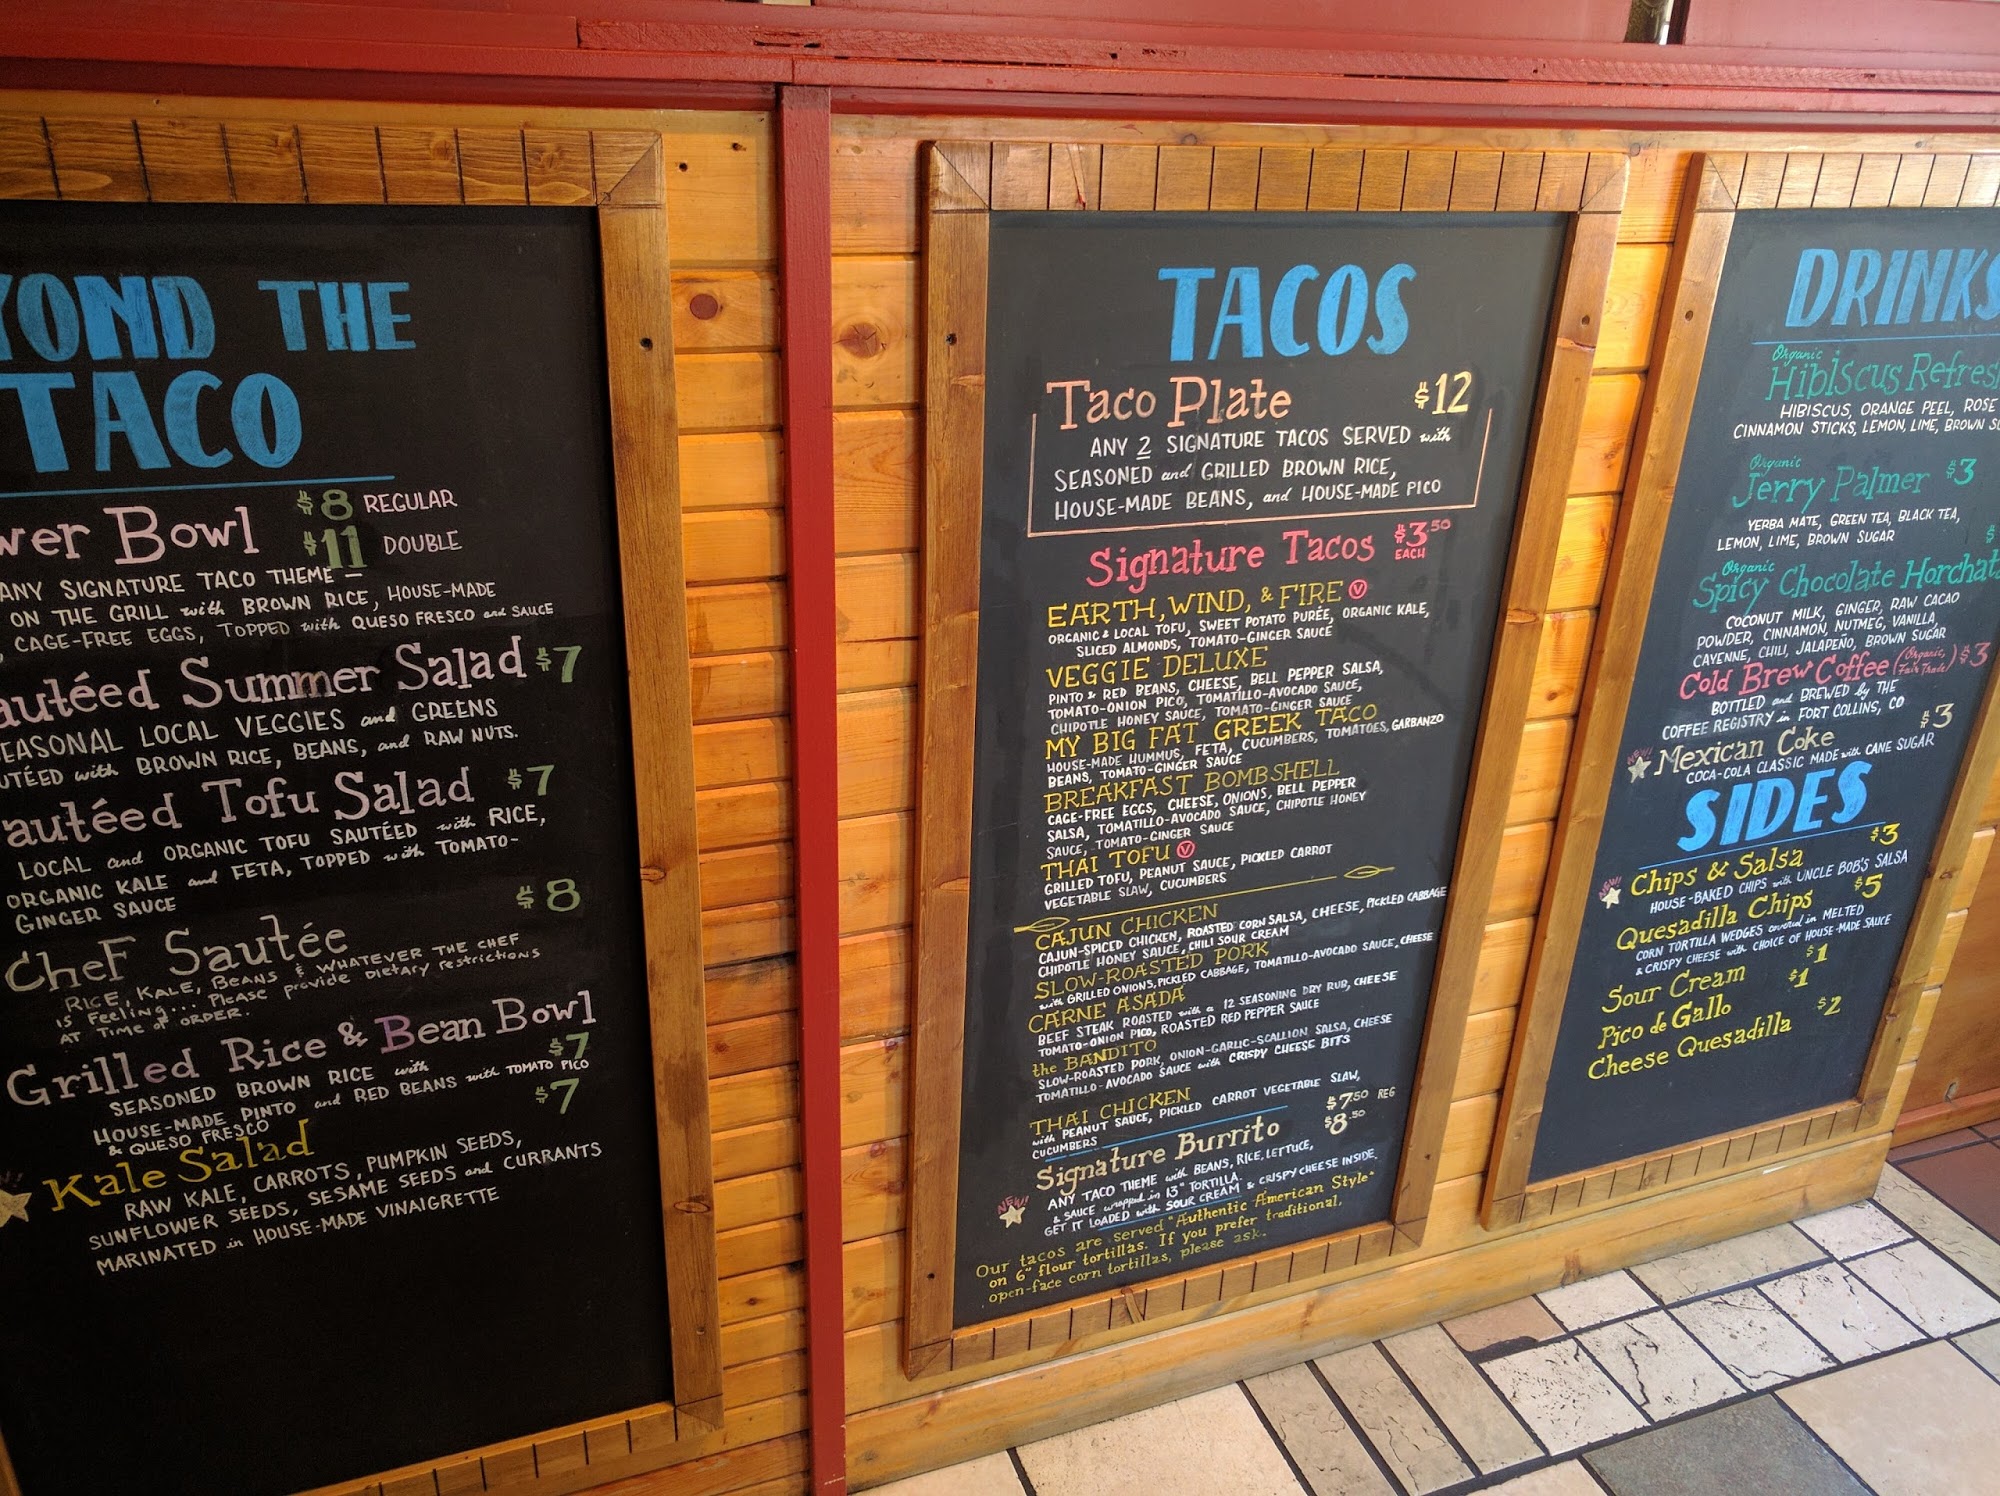 YOND THE
TACO
wer Bowl $8 REGULAR
$11 DOUBLE
ANY SIGNATURE TACO THEME —
ON THE GRILL with BROWN RICE, HOUSE-MADE
, CAGE-FREE EGGS, TOPPED with QUESO FRESCO and SAUCE
autéed Summer Salad $7
EASONAL LOCAL VEGGIES and GREENS
UTÉED with BROWN RICE, BEANS, and RAW NUTS.
autéed Tofu Salad $7
LOCAL and ORGANIC TOFU SAUTÉED with RICE,
ORGANIC KALE and FETA, TOPPED with TOMATO-
GINGER SAUCE
CheF Sautée $8
RICE, KALE, BEANS & WHATEVER THE CHEF
is Feeling... Please provide Dietary restrictions
AT Time of ORDER.
Grilled Rice & Bean Bowl
$7
SEASONED BROWN RICE with
HOUSE-MADE PINTO and RED BEANS with TOMATO PICO
& QUESO FRESCO
Kale Salad $7
RAW KALE, CARROTS, PUMPKIN SEEDS,
SUNFLOWER SEEDS, SESAME SEEDS and CURRANTS
MARINATED in HOUSE-MADE VINAIGRETTE
TACOS
Taco Plate $12
ANY 2 SIGNATURE TACOS SERVED with
SEASONED and GRILLED BROWN RICE,
HOUSE-MADE BEANS, and HOUSE-MADE PICO
Signature Tacos $3.50 EACH
EARTH, WIND, & FIRE V
ORGANIC & LOCAL TOFU, SWEET POTATO PURÉE, ORGANIC KALE,
SLICED ALMONDS, TOMATO-GINGER SAUCE
VEGGIE DELUXE
PINTO & RED BEANS, CHEESE, BELL PEPPER SALSA,
TOMATO-ONION PICO, TOMATILLO-AVOCADO SAUCE,
CHIPOTLE HONEY SAUCE, TOMATO-GINGER SAUCE
MY BIG FAT GREEK TACO
HOUSE-MADE HUMMUS, FETA, CUCUMBERS, TOMATOES, GARBANZO
BEANS, TOMATO-GINGER SAUCE
BREAKFAST BOMBSHELL
CAGE-FREE EGGS, CHEESE, ONIONS, BELL PEPPER
SALSA, TOMATILLO-AVOCADO SAUCE, CHIPOTLE HONEY
SAUCE, TOMATO-GINGER SAUCE
THAI TOFU V
GRILLED TOFU, PEANUT SAUCE, PICKLED CARROT
VEGETABLE SLAW, CUCUMBERS
CAJUN CHICKEN
CAJUN-SPICED CHICKEN, ROASTED CORN SALSA, CHEESE, PICKLED CABBAGE
CHIPOTLE HONEY SAUCE, CHILI SOUR CREAM
SLOW-ROASTED PORK
with GRILLED ONIONS, PICKLED CABBAGE, TOMATILLO-AVOCADO SAUCE, CHEESE
CARNE ASADA
BEEF STEAK ROASTED with a 12 SEASONING DRY RUB, CHEESE
TOMATO-ONION PICO, ROASTED RED PEPPER SAUCE
the BANDITO
SLOW-ROASTED PORK, ONION-GARLIC-SCALLION SALSA, CHEESE
TOMATILLO-AVOCADO SAUCE with CRISPY CHEESE BITS
THAI CHICKEN
with PEANUT SAUCE, PICKLED CARROT VEGETABLE SLAW,
CUCUMBERS
Signature Burrito $7.50 REG
$8.50
ANY TACO THEME with BEANS, RICE, LETTUCE,
& SAUCE wrapped in 13" TORTILLA.
NEW! GET IT LOADED with SOUR CREAM & CRISPY CHEESE INSIDE.
Our tacos are served "Authentic American Style"
on 6" flour tortillas. If you prefer traditional,
open-face corn tortillas, please ask.
DRINKS
Organic
Hibiscus Refres
HIBISCUS, ORANGE PEEL, ROSE
CINNAMON STICKS, LEMON, LIME, BROWN SU
Organic
Jerry Palmer $3
YERBA MATE, GREEN TEA, BLACK TEA,
LEMON, LIME, BROWN SUGAR
$
Organic
Spicy Chocolate Horchata
COCONUT MILK, GINGER, RAW CACAO
POWDER, CINNAMON, NUTMEG, VANILLA,
CAYENNE, CHILI, JALAPEÑO, BROWN SUGAR
Cold Brew Coffee (Organic, Fair Trade) $3
BOTTLED and BREWED by THE
COFFEE REGISTRY in FORT COLLINS, CO
NEW! Mexican Coke $3
COCA-COLA CLASSIC MADE with CANE SUGAR
SIDES
NEW! Chips & Salsa $3
HOUSE-BAKED CHIPS with UNCLE BOB'S SALSA
Quesadilla Chips $5
CORN TORTILLA WEDGES covered in MELTED
& CRISPY CHEESE with CHOICE OF HOUSE-MADE SAUCE
Sour Cream $1
Pico de Gallo $1
Cheese Quesadilla $2